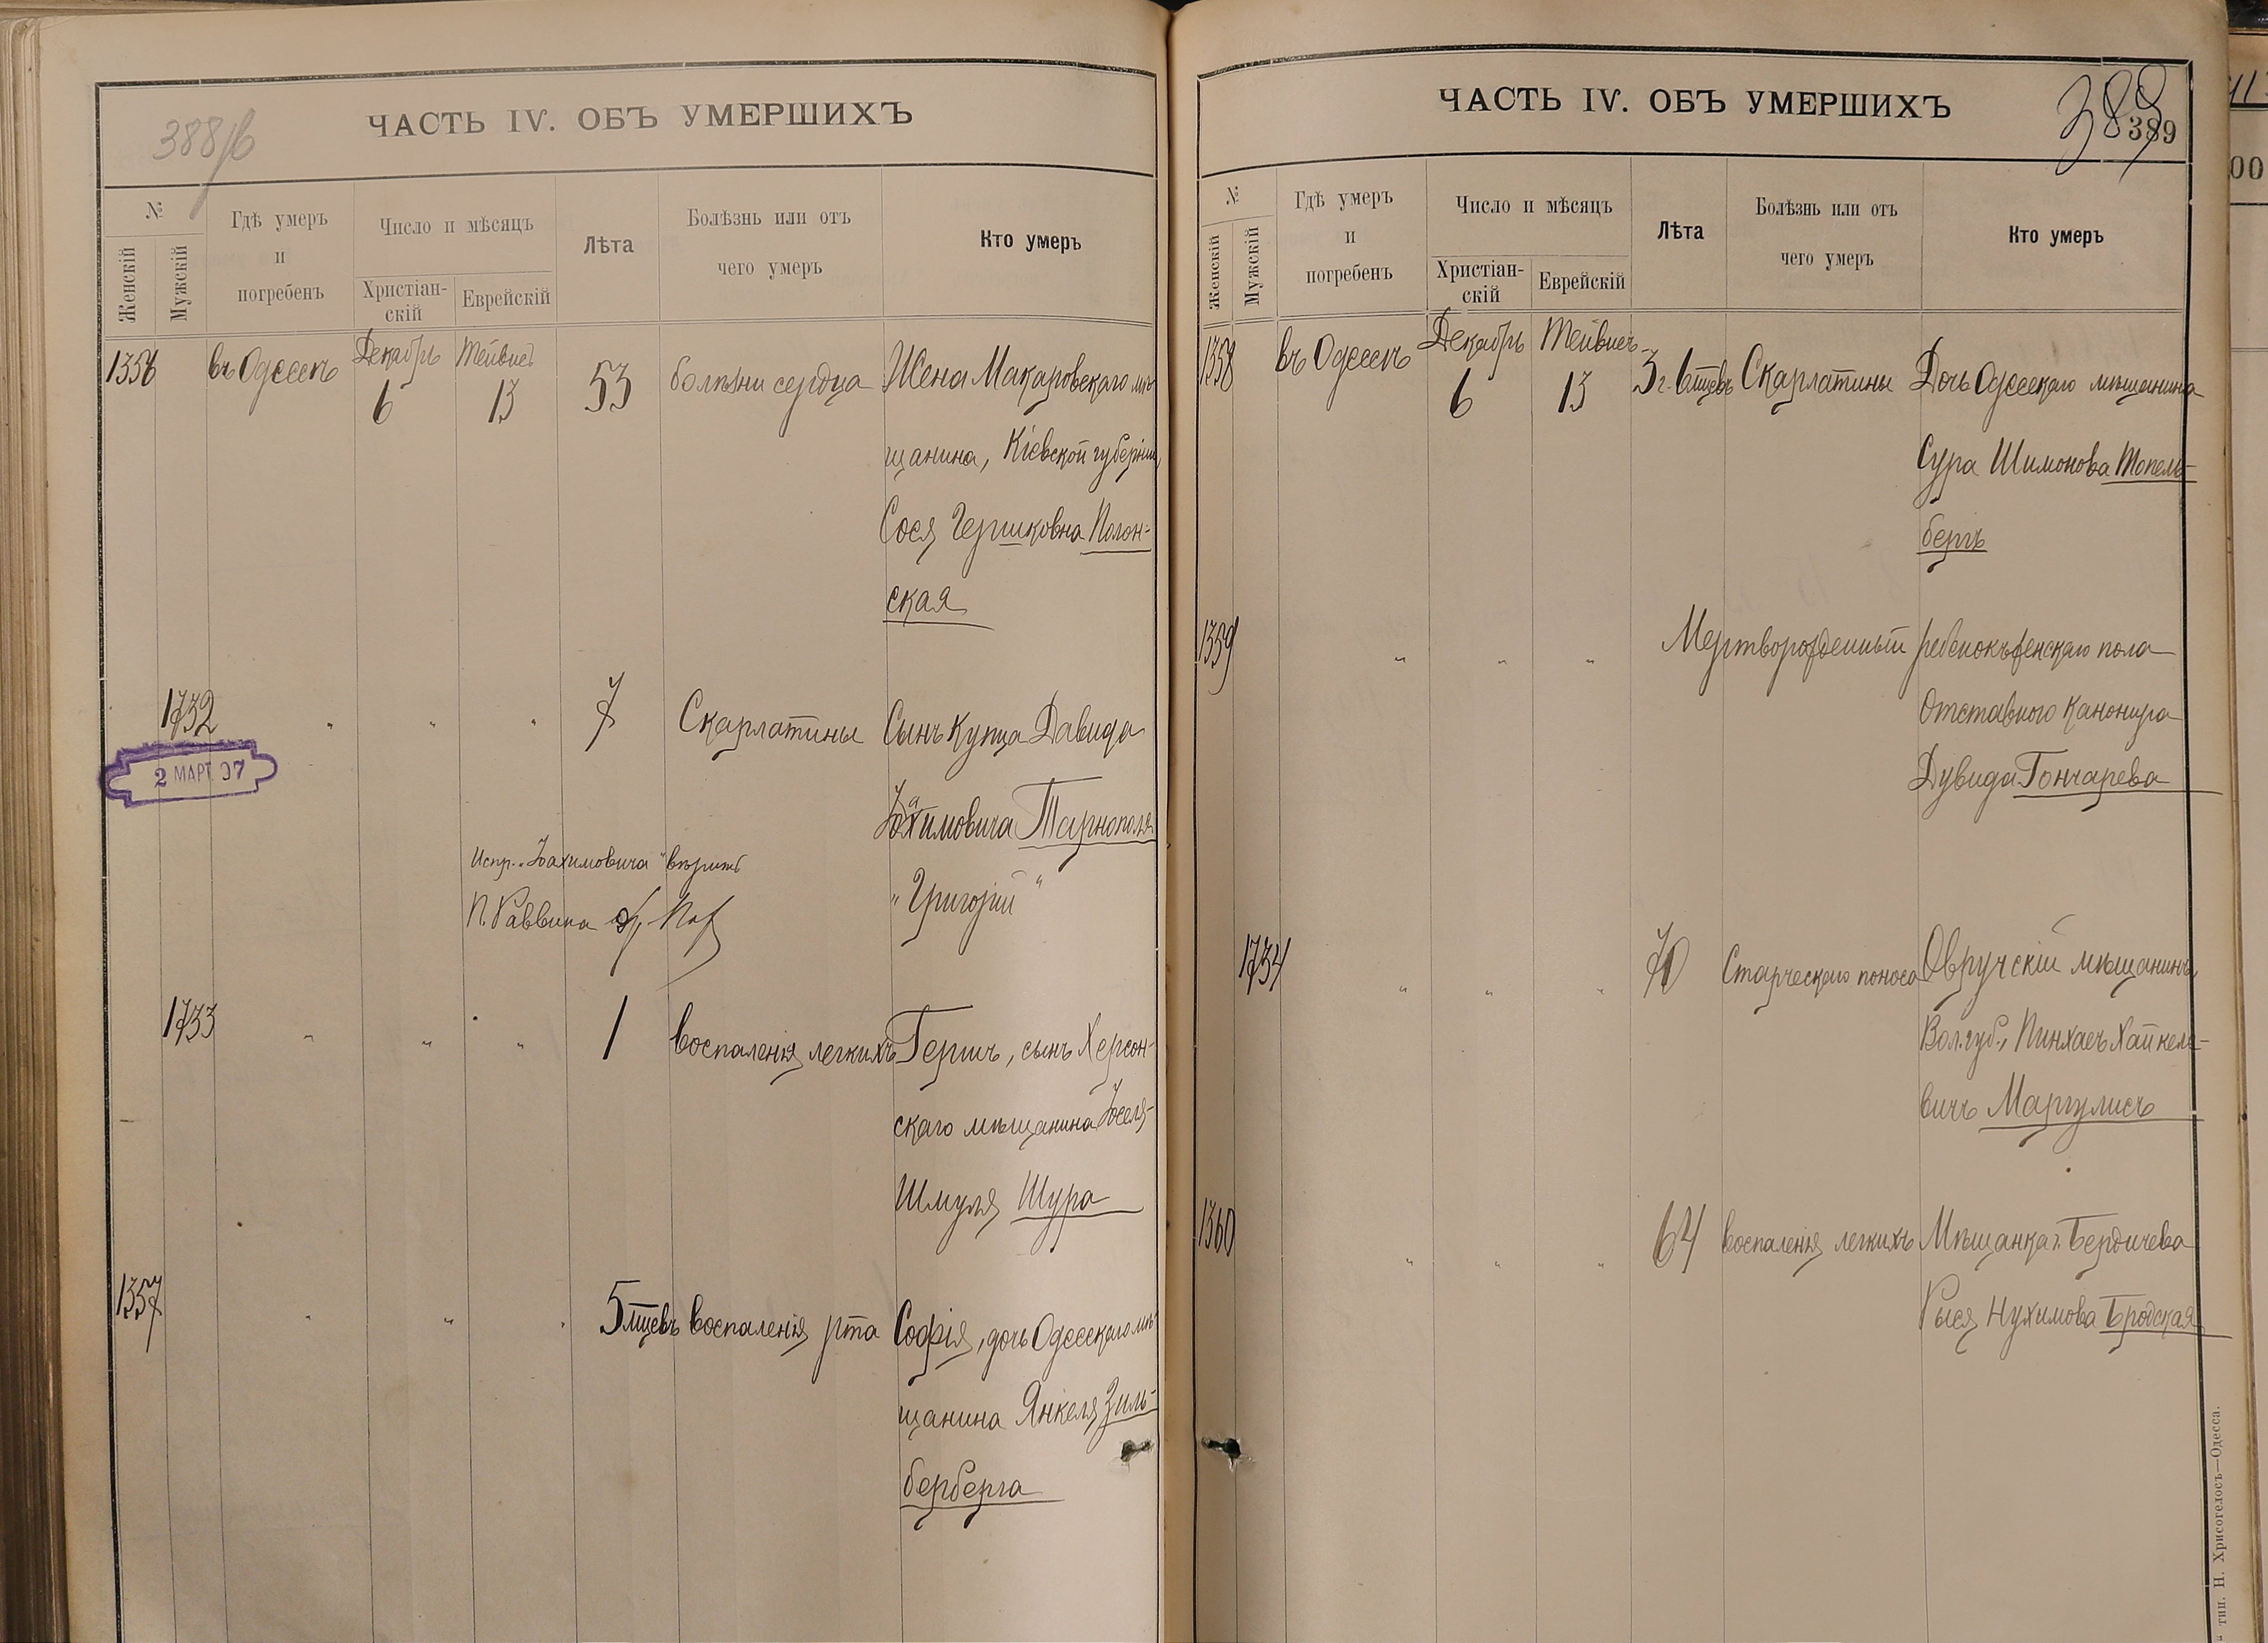 388 /б
ЧАСТЬ IV. ОБЪ УМЕРШИХЪ
№
Женскій
Мужскій
Гдѣ умеръ
и
погребенъ
Число и мѣсяцъ
Христіан-
скій
Еврейскій
Лѣта
Болѣзнь или отъ
чего умеръ
Кто умеръ
1356 въ Одессѣ Декабрь 6 Тейвисъ 13 53 болѣзни сердца Жена Макаровскаго мѣ-
щанина, Кіевской губерніи,
Сося Гершковна Полон-
ская
1732 " " " 7 Скарлатины Сынъ купца Давида
2 МАРТ. 97
Іохимовича Тарнополя
Испр. "Іахимовича" вѣрить
П. Раввина
"Григорій"
1733 " " " 1 воспаленія легкихъ Гершъ, сынъ Херсон-
скаго мѣщанина Іоселя-
Шмуля Шура
1357 " " " 5 мцевъ воспаленія рта Софія, дочь Одесскаго мѣ-
щанина Янкеля Зиль-
берберга
ЧАСТЬ IV. ОБЪ УМЕРШИХЪ
389
389
№
Женскій
Мужскій
Гдѣ умеръ
и
погребенъ
Число и мѣсяцъ
Христіан-
скій
Еврейскій
Лѣта
Болѣзнь или отъ
чего умеръ
Кто умеръ
1358 въ Одессѣ Декабрь 6 Тейвисъ 13 3 г. 6 мцевъ Скарлатины Дочь Одесскаго мѣщанина
Сура Шимонова Топель-
бергъ
1359 " " " Мертворожденный ребенокъ женскаго пола
Отставного канонира
Дувида Гончарева
1734 " " " 70 Старческаго поноса Овручскій мѣщанинъ,
Вол. губ., Пинхасъ Хайкеле-
вичъ Маргулисъ
1360 " " " 64 воспаленія легкихъ Мѣщанка г. Бердичева
Рыся Нухимова Бродская
" тип. Н. Хрисогелосъ—Одесса.